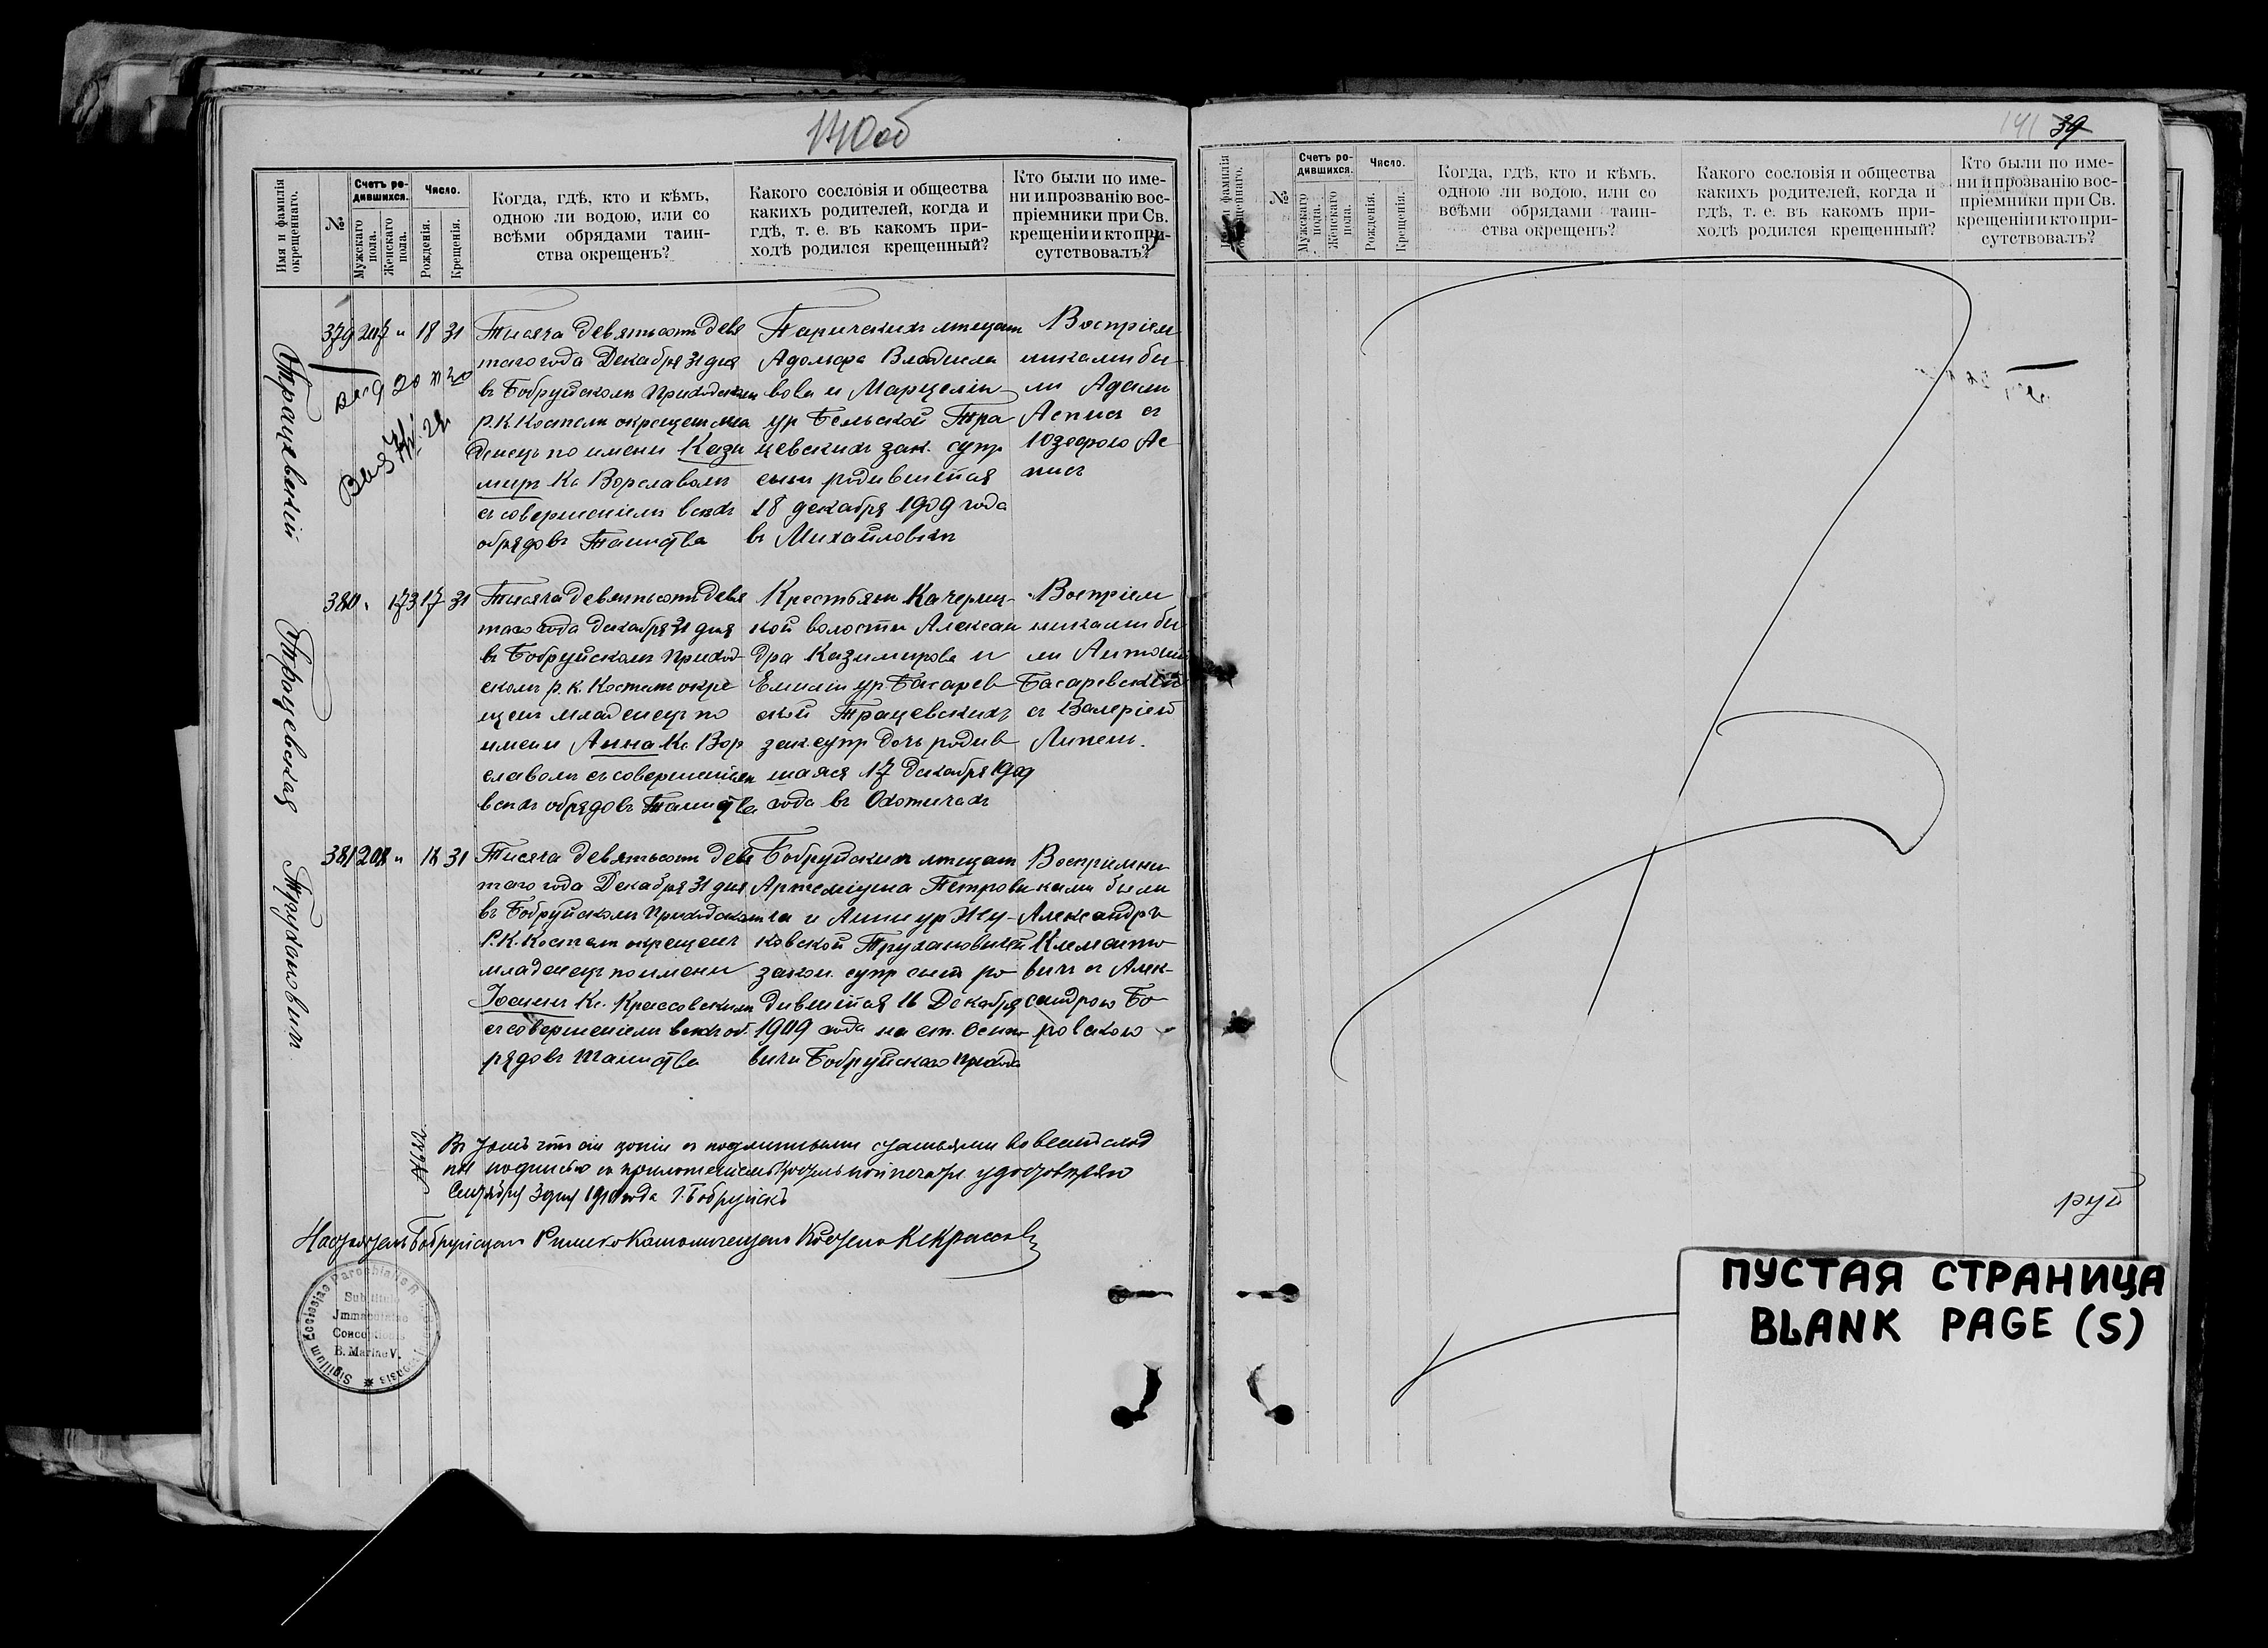 140об
Имя и фамилія окрещеннаго.
№
Счетъ родившихся.
Мужскаго пола.
Женскаго пола.
Число.
Рожденія.
Крещенія.
Когда, гдѣ, кто и кѣмъ,
одною ли водою, или со
всѣми обрядами таин-
ства окрещенъ?
Какого сословія и общества
какихъ родителей, когда и
гдѣ, т. е. въ какомъ при-
ходѣ родился крещенный?
Кто были по име-
ни и прозванію вос-
пріемники при Св.
крещеніи и кто при-
сутствовалъ?
Трацевскій
379 207 " 18 31
Тысяча девятьсотъ девя
таго года Декабря 31 дня
въ Бобруйскомъ Приходскомъ
Р. К. Костелѣ окрещенъ мла
денецъ по имени Кази
миръ Кс. Ворславомъ
съ совершеніемъ всѣхъ
обрядовъ Таинства
Паричскихъ мѣщанъ
Адольфа Владисла
вова и Марцеліи
ур Бельской Тра
цевскихъ зак. супр
сынъ родившійся
18 декабря 1909 года
въ Михайловкѣ
Воспріем
никами бы-
ли Адамъ
Аспись съ
Юзефою Ас
пись
Трацевская
380 " 173 17 31
Тысяча девятьсотъ девя
таго года декабря 31 дня
въ Бобруйскомъ Приход
скомъ р. к. Костелѣ окре
щенъ младенецъ по
имени Анна Кс Вор
славомъ съ совершеніемъ
всѣхъ обрядовъ Таинства
Крестьянъ Качериц-
кой волости Алексан
дра Казимирова и
Емиліи ур Басарев
ской Трацевскихъ
зак. супр дочь родив
шаяся 17 декабря 1909
года въ Охотичахъ
Воспріем
никами бы
ли Антоній
Басаревскій
съ Валеріей
Липень.
Трухановичъ
381 208 " 16 31
Тысяча девятьсотъ девя
таго года Декабря 31 дня
въ Бобруйскомъ Приходскомъ
Р. К. Костелѣ окрещенъ
младенецъ по имени
Іоаннъ Кс. Крассовскимъ
съ совершеніемъ всѣхъ об-
рядовъ Таинства
Бобруйскихъ мѣщанъ
Артеміуша Петрови
ча и Анны ур Жу-
ковской Трухановичей
закон. супр сынъ ро
дившійся 16 Декабря
1909 года на ст. Осипо
вичи Бобруйскаго прихода
Воспріемни
ками были
Александръ
Клеманто
вичъ съ Алек-
сандрою Бо
ровскою
Въ томъ что сія копія съ подлинными статьями
подписью съ приложеніемъ костельной печати удостовѣряю
Сентября 3 дня 1910 года г. Бобруйскъ
Настоятель Бобруйскаго Римско Католическаго Костела
Sigillum Ecclesiae Parochialis
Sub titulo
Jmmaculatae
Conceptionis
B. Mariae V.
141 39
Имя и фамилія окрещеннаго.
№
Счетъ родившихся.
Мужскаго пола.
Женскаго пола.
Число.
Рожденія.
Крещенія.
Когда, гдѣ, кто и кѣмъ,
одною ли водою, или со
всѣми обрядами таин-
ства окрещенъ?
Какого сословія и общества
какихъ родителей, когда и
гдѣ, т. е. въ какомъ при-
ходѣ родился крещенный?
Кто были по име-
ни и прозванію вос-
пріемники при Св.
крещеніи и кто при-
сутствовалъ?
руй
ПУСТАЯ СТРАНИЦА
BLANK PAGE (S)